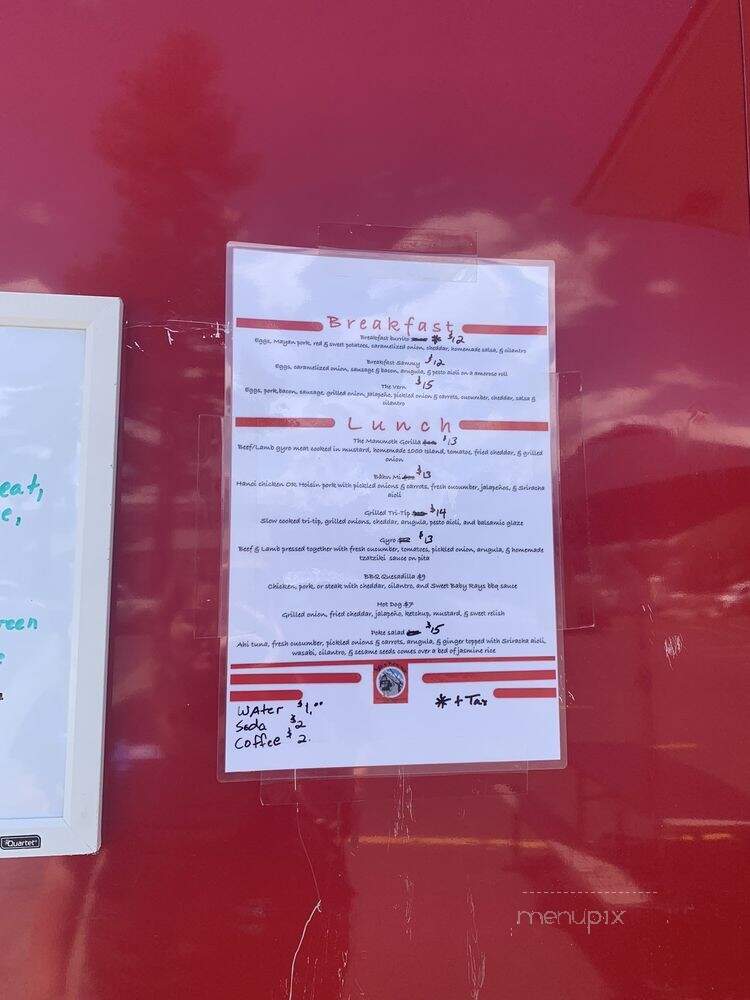 Breakfast
Breakfast burrito * $12
Eggs, Mayan pork, red & sweet potatoes, caramelized onion, cheddar, homemade salsa, & cilantro
Breakfast Sammy $12
Eggs, caramelized onion, sausage & bacon, arugula, & pesto aioli on a amoroso roll
The Vern $15
Eggs, pork, bacon, sausage, grilled onion, jalapeño, pickled onion & carrots, cucumber, cheddar, salsa &
cilantro
Lunch
The Mammoth Gorilla $13
Beef/Lamb gyro meat cooked in mustard, homemade 1000 Island, tomatoe, fried cheddar, & grilled
onion
Báhn Mi $13
Hanoi chicken OR Hoisin pork with pickled onions & carrots, fresh cucumber, jalapeños, & Sriracha
aioli
Grilled Tri-Tip $14
Slow cooked tri-tip, grilled onions, cheddar, arugula, pesto aioli, and balsamic glaze
Gyro $13
Beef & Lamb pressed together with fresh cucumber, tomatoes, pickled onion, arugula, & homemade
tzatziki sauce on pita
BBQ Quesadilla $9
Chicken, pork, or steak with cheddar, cilantro, and Sweet Baby Rays bbq sauce
Hot Dog $7
Grilled onion, fried cheddar, jalapeño, ketchup, mustard, & sweet relish
Poke Salad $15
Ahi tuna, fresh cucumber, pickled onions & carrots, arugula, & ginger topped with Sriracha aioli,
wasabi, cilantro, & sesame seeds comes over a bed of jasmine rice
Water $1.00
Soda $2
Coffee $2.
* + Tax
eat,
e,
reen
e
Quartet
menupix